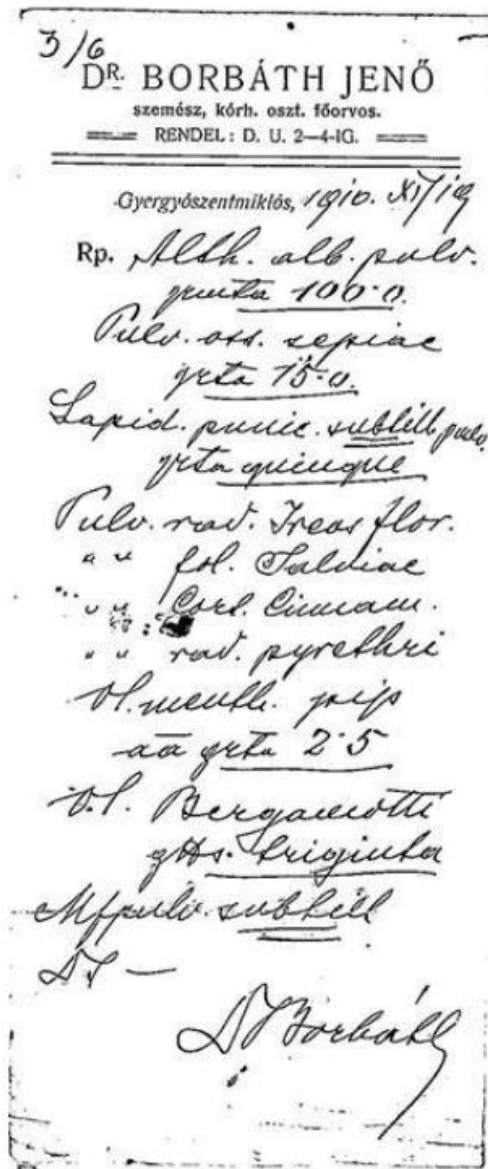 3/6
DR. BORBÁTH JENŐ
szemész, kórh. oszt. főorvos.
RENDEL: D. U. 2—4-IG.
Gyergyószentmiklós, 1910. XI/19
Rp. Alth. alb. pulv.
gmta 100·0.
Pulv. oss. sepiae
grta 15·0.
Lapid. pumic. subtill. pulv.
grta quinque
Pulv. rad. Ireos flor.
" " fol. Salviae
" " Cort. Cinnam.
" " rad. pyrethri
Ol. menth. pip
aa grta 2·5
Ol. Bergamotti
gtts. triginta
Mfpulv. subtill
DS —
Dr Borbáth